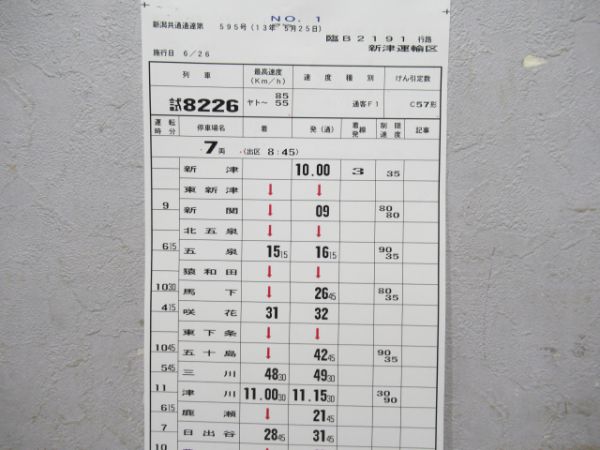 NO. 1
新潟共通達第 595号(13年 5月25日)
臨B2191 行路
施行日 6/26 新津運輸区
列車 最高速度(Km/h) 速度種別 けん引定数
試8226 85 ヤト〜55 通客F1 C57形
運転時分 停車場名 着 発(通) 着発線 制限速度 記事
7両 (出区 8:45)
新津 10.00 3 35
東新津 ↓ ↓
9 新関 ↓ 09 80 80
北五泉 ↓ ↓
6 15 五泉 15 15 16 15 90 35
猿和田 ↓ ↓
10 30 馬下 ↓ 26 45 80 35
4 15 咲花 31 32
東下条 ↓ ↓
10 45 五十島 ↓ 42 45 90 35
5 45 三川 48 30 49 30
11 津川 11.00 30 11.15 30 30 90
6 15 鹿瀬 ↓ 21 45
7 日出谷 28 45 31 45
10